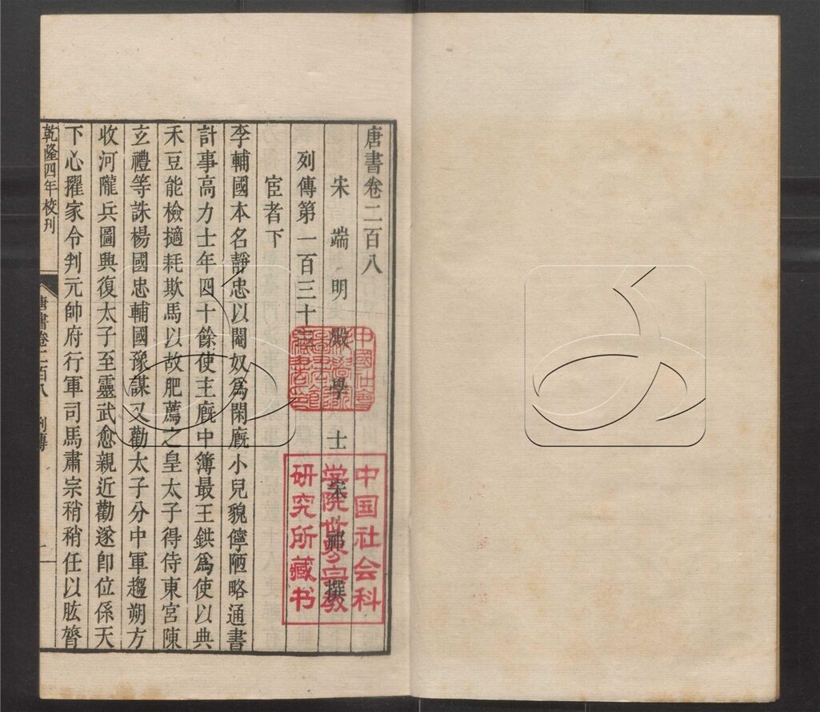 唐書卷二百八
宋端明殿學士宋祁撰
列傳第一百三十三
宦者下
李輔國本名靜忠以閹奴爲閑廄小兒貌儜陋略通書
計事高力士年四十餘使主廄中簿最王鉷爲使以典
禾豆能檢擿耗欺馬以故肥薦之皇太子得侍東宮陳
玄禮等誅楊國忠輔國豫謀又勸太子分中軍趨朔方
收河隴兵圖興復太子至靈武愈親近勸遂卽位係天
下心擢家令判元帥府行軍司馬肅宗稍稍任以肱膂
乾隆四年校刊
唐書卷二百八 列傳
一
中国社会科
学院世界宗教
研究所藏书